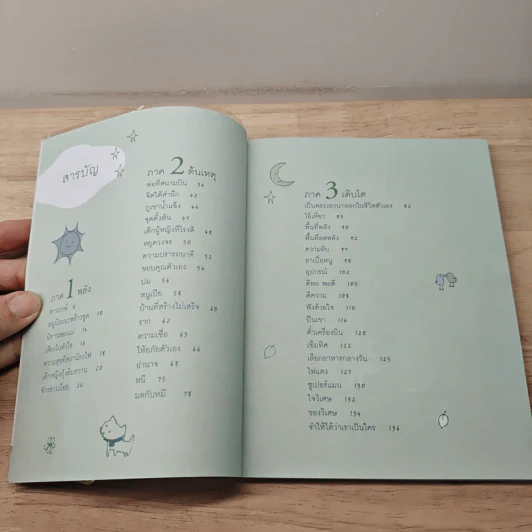 สารบัญ
ภาค 1 พลัง
ภาค 2 ต้นเหตุ
พ่อที่สนามบิน 34
จิตใต้สำนึก 42
ภูเขาน้ำแข็ง 44
จุดตั้งต้น 47
เด็กผู้หญิงที่ไรสี 48
หยุดวงจร 50
ความปรารถนาดี 52
ขอบคุณตัวเอง 54
ปม 56
หนูเปีย 58
บ้านที่สร้างไม่เสร็จ 60
ราก 62
ความเชื่อ 63
ให้อภัยตัวเอง 66
อำนาจ 68
หนี 75
มดกับหมี 78
ภาค 3 เติบโต
เป็นพระเอกนางเอกในชีวิตตัวเอง 82
ไส้เดียว
พื้นที่พลัง 90
พื้นที่ลดพลัง 92
ความลับ 97
ยาเบื่อหนู 98
อุปกรณ์ 102
ดีพอ พอดี 105
ตีความ 108
ฟังด้วยใจ 110
ปีนเขา 116
ตั๋วเครื่องบิน 120
เข็มทิศ 122
เลือกอาหารกลางวัน 125
ไฟแดง 127
ซูเปอร์แมน 130
ใจวิเศษ 132
ของวิเศษ 134
จำให้ได้ว่าเราเป็นใคร 136